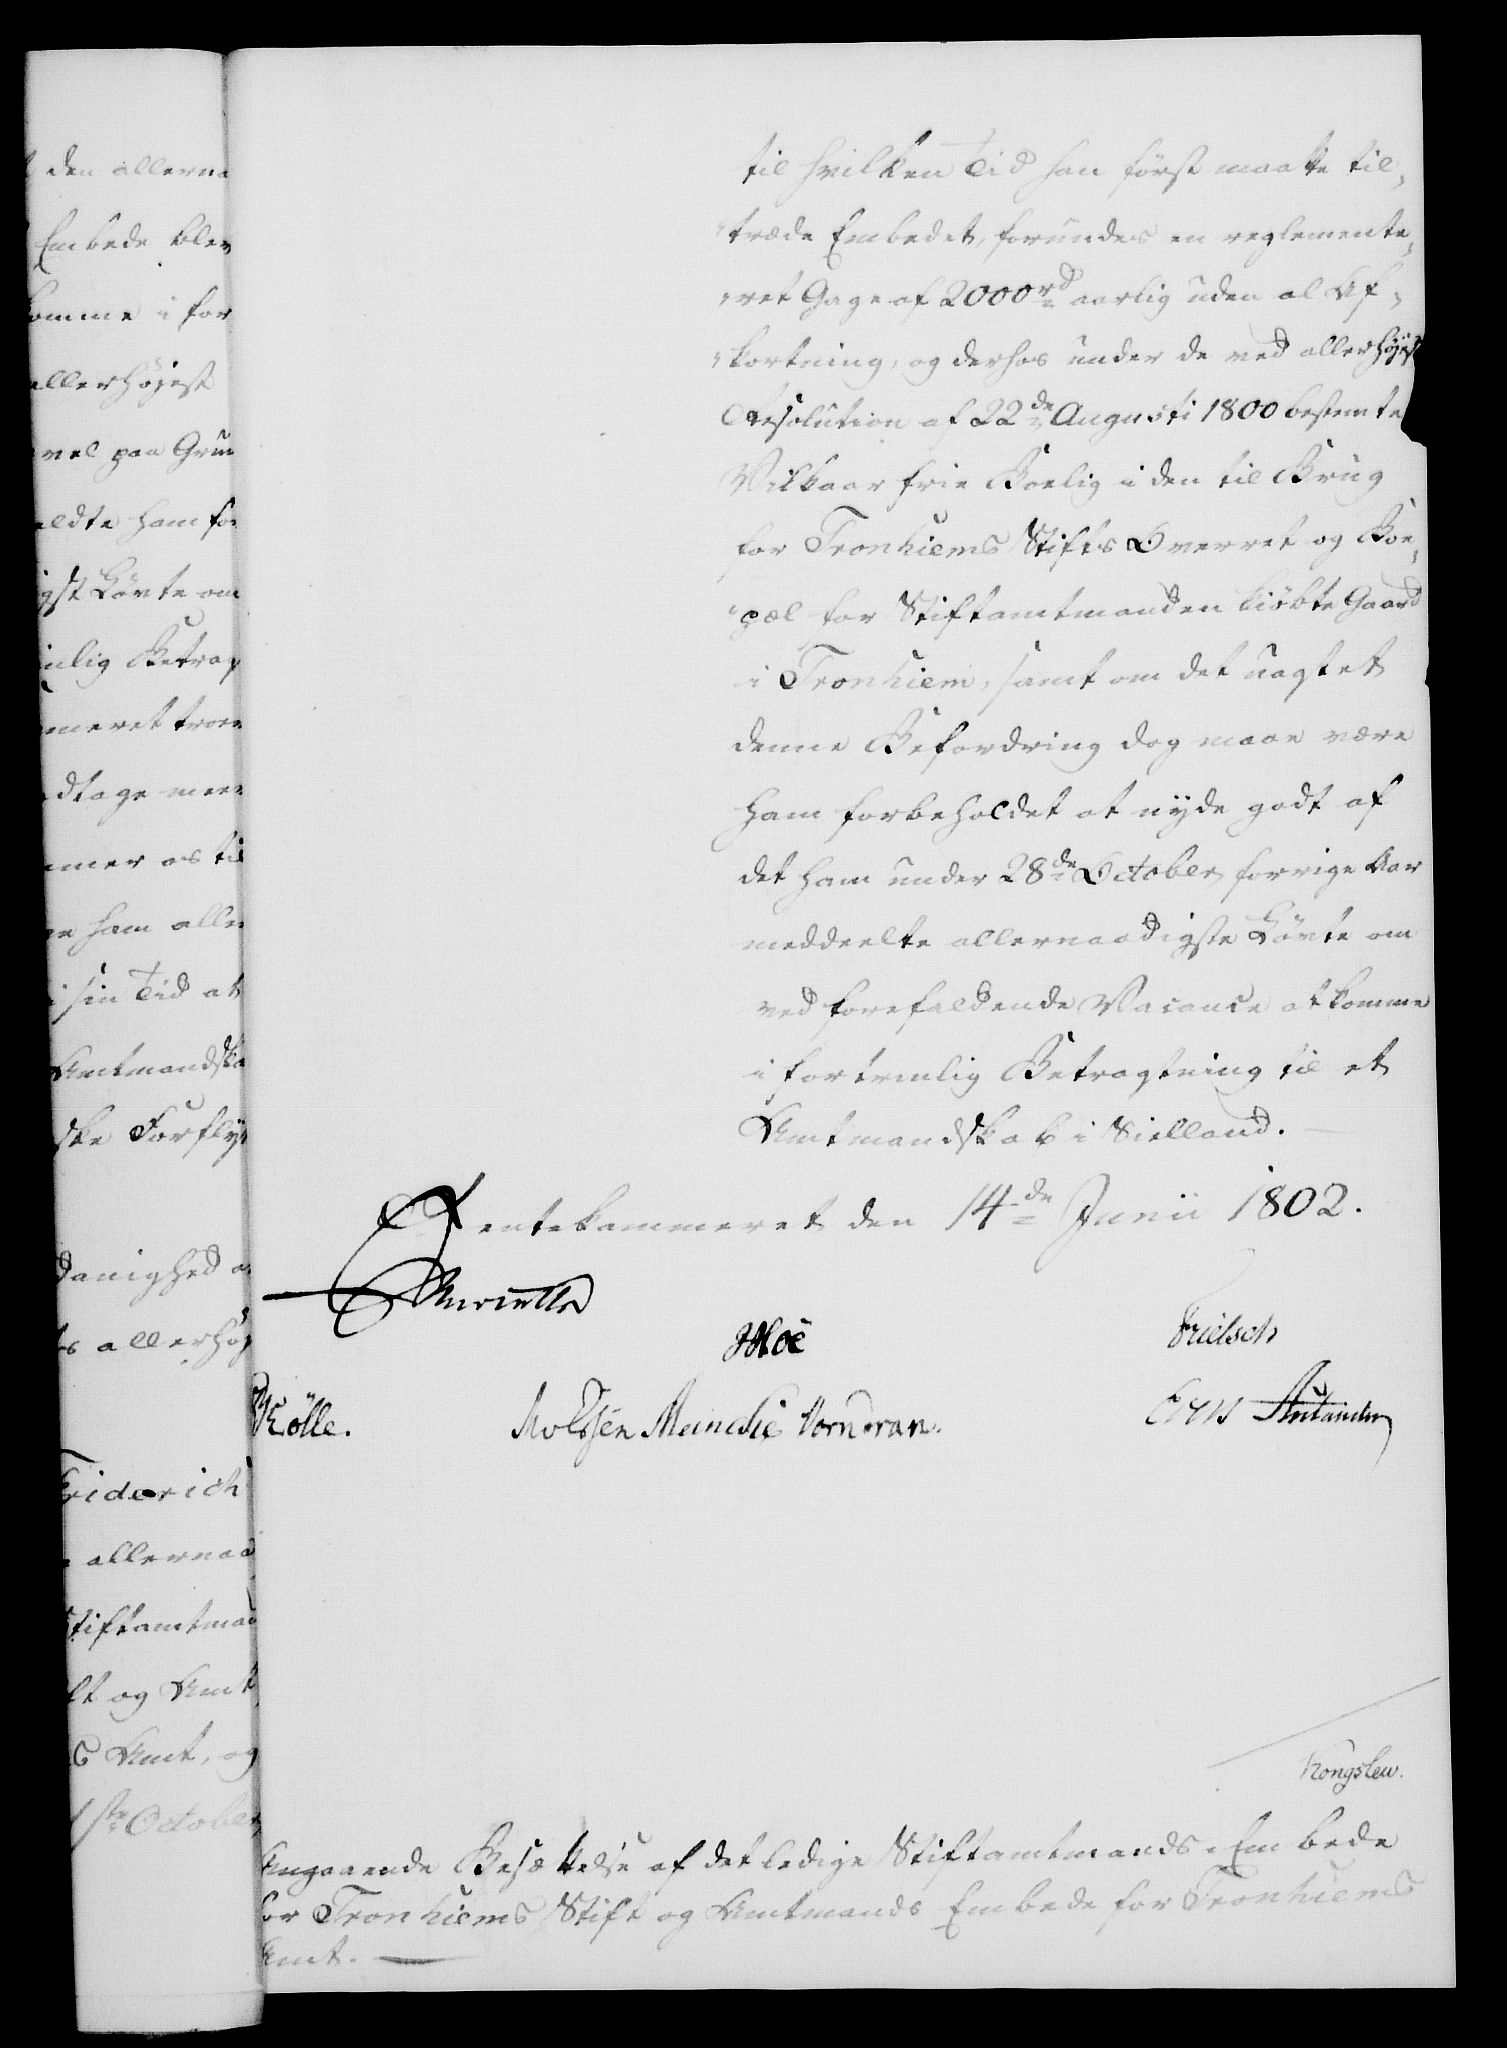 den allerna
Embede blev
komme i for
allerhöjest
vel paa Grun
ldte ham for
igst Lövte om
inlig Betrag
meret troer
dtage meer
mer os til
ge ham aller
i sin Tid at
Amtmandska
ske Forfly
danighed a
ts allerhöj
Friderich
allernaa
Stiftamtman
ft og Amt
s Amt, og
1ste October
til hvilken Tid han först maatte til,
"træde Embedet, forundes en reglemente,
"ret Gage af 2000rd aarlig uden al Af,
"kortning, og derhos under de ved allerhöjest
Resolution af 22de Augusti 1800 bestemte
Vilkaar frie Boelig i den til Brug
for Tronhiems Stifts Overret og Boe,
"pæl for Stiftamtmanden kiöbte Gaard
i Tronhiem, samt om det uagtet
denne Befordring dog maae være
ham forbeholdet at nyde godt af
det ham under 28de October forrige Aar
meddeelte allernaadigste Lövte om
ved forefaldende Vacance at komme
i fortrinlig Betragtning til et
Amtmandskab i Sielland.
Rentekammeret den 14de Junii 1802.
Moe
Kölle.
Meincke Vorndran.
Kongslew.
Angaaende Besættelse af det ledige Stiftamtmands-Embede
for Tronhiems Stift og Amtmands Embede for Tronhiems
Amt.